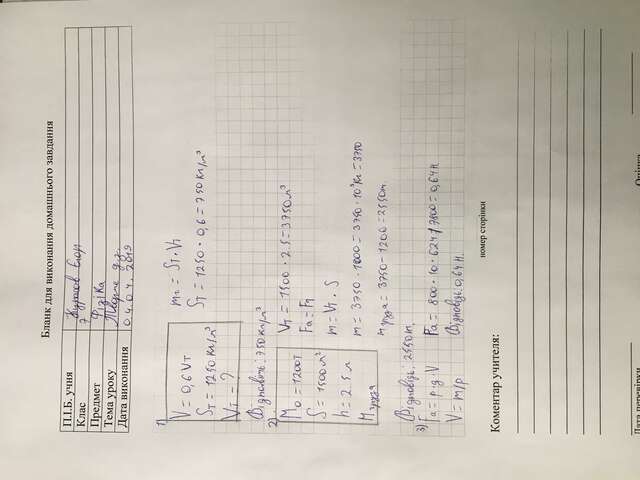 Бланк для виконання домашнього завдання
П.І.Б. учня
Клас 7
Предмет Фізіка
Тема уроку
Дата виконання 04.04.2019
1)
V = 0,6 Vт
Sт = 1250 кг/м³
Vт - ?
mт = Sт · Vт
Sт = 1250 · 0,6 = 750 кг/м³
Відповідь: 750 кг/м³
2)
Mо = 1200т
S = 1500 м²
h = 2.5 м
M груза
Vт = 1500 · 2.5 = 3750 м³
Fа = Fт
m = Vт · S
m = 3750 · 1000 = 3750 · 10³кг = 3750
m груза = 3750 - 1200 = 2550т.
Відповідь: 2550т.
3)
Fа = pig V
V = m/p
Fа = 800 · 10 · 0.624/7800 = 0,64 Н.
Відповідь: 0,64 Н.
номер сторінки
Коментар учителя:
Дата перевірки
Оцінка